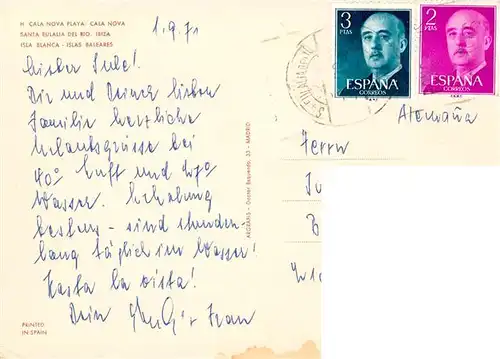 H CALA NOVA PLAYA. CALA NOVA
SANTA EULALIA DEL RIO. IBIZA
ISLA BLANCA - ISLAS BALEARES
1.9.71
Lieber
Dir und Deiner lieben
Familie herzliche
Urlaubsgrüsse bei
40° Luft und
Wasser. Erholung
bestens - sind stunden-
lang täglich im Wasser!
Hasta la vista!
Dein
PRINTED
IN SPAIN
AEGRAFIS - MADRID
3
PTAS
ESPAÑA
CORREOS
2
PTAS
ESPAÑA
CORREOS
Alemania
Herrn